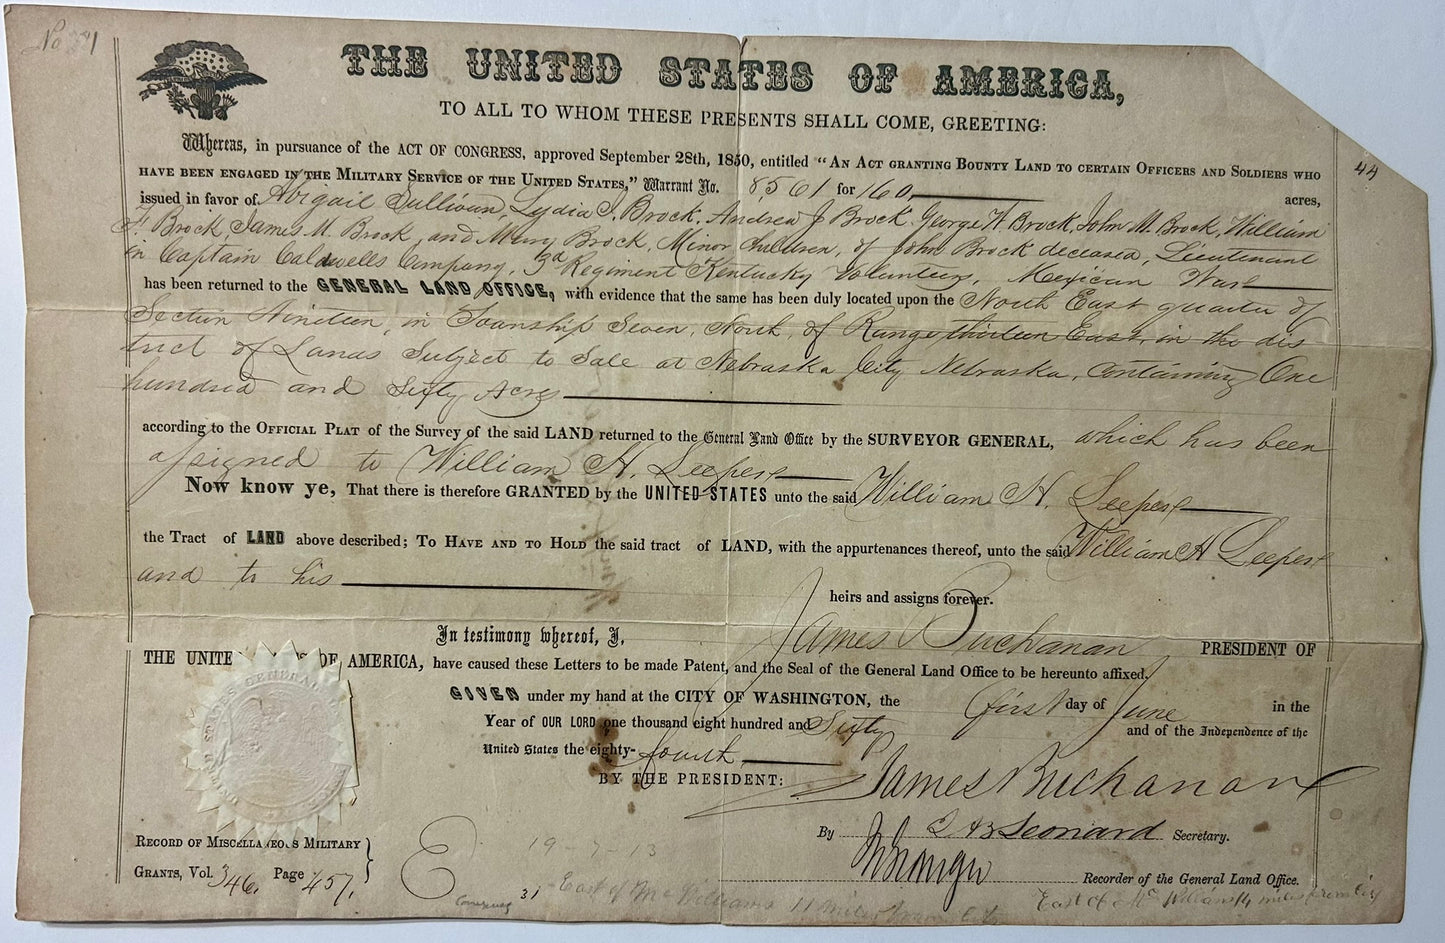 No 
44
THE UNITED STATES OF AMERICA,
TO ALL TO WHOM THESE PRESENTS SHALL COME, GREETING:
Whereas, in pursuance of the ACT OF CONGRESS, approved September 28th, 1850, entitled "AN ACT GRANTING BOUNTY LAND TO CERTAIN OFFICERS AND SOLDIERS WHO
HAVE BEEN ENGAGED IN THE MILITARY SERVICE OF THE UNITED STATES," Warrant No. 8,561 for 160 acres,
issued in favor of Abigail Sullivan, Lydia J. Brock, Andrew J Brock, George W Brock, John M. Brock, William
F. Brock, James M. Brock, and Mary Brock, Minor children, of John Brock deceased, Lieutenant
in Captain Caldwells Company, 3d Regiment Kentucky Volunteers, Mexican War
has been returned to the GENERAL LAND OFFICE, with evidence that the same has been duly located upon the North East quarter of
Section Nineteen, in Township Seven, North, of Range thirteen East, in the dis
trict of Lands Subject to Sale at Nebraska City Nebraska, Containing One
hundred and Sixty Acres
according to the OFFICIAL PLAT of the Survey of the said LAND returned to the General Land Office by the SURVEYOR GENERAL, which has been
assigned to William H. Leeper
Now know ye, That there is therefore GRANTED by the UNITED STATES unto the said William H. Leeper
the Tract of LAND above described; TO HAVE AND TO HOLD the said tract of LAND, with the appurtenances thereof, unto the said William H Leeper
and to his heirs and assigns forever.
In testimony whereof, I, James Buchanan PRESIDENT OF
THE UNITE S OF AMERICA, have caused these Letters to be made Patent, and the Seal of the General Land Office to be hereunto affixed.
GIVEN under my hand at the CITY OF WASHINGTON, the first day of June in the
Year of OUR LORD one thousand eight hundred and Sixty and of the Independence of the
United States the eighty-fourth
BY THE PRESIDENT: James Buchanan
By J B Leonard Secretary.
RECORD OF MISCELLANEOUS MILITARY
GRANTS, Vol. 346. Page 457.
Recorder of the General Land Office.
19-7-13
31
East of McWilliams 11 miles from City
East of McWilliams 14 miles from City